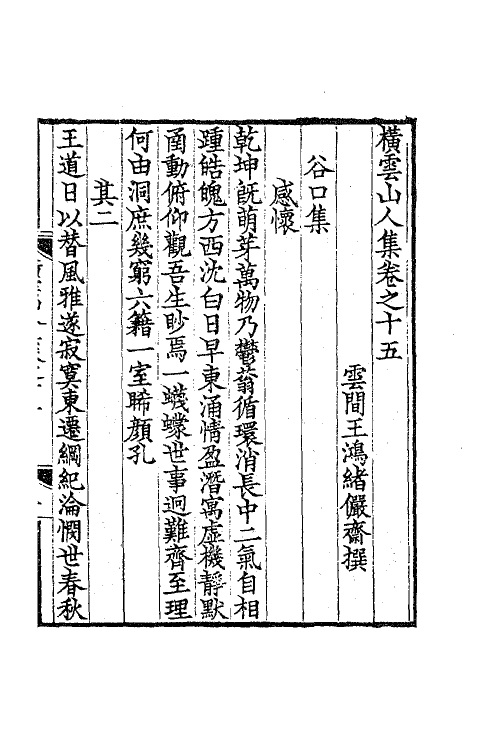 橫雲山人集卷之十五
雲間王鴻緒儼齋撰
谷口集
感懷
乾坤旣萌芽萬物乃鬱蓊循環消長中二氣自相
踵皓魄方西沈白日早東涌情盈潛寓虛機靜默
函動俯仰觀吾生眇焉一蠛蠓世事迥難齊至理
何由洞庶幾窮六籍一室睎顏孔
其二
王道日以替風雅遂寂寞東遷綱紀淪憫世春秋